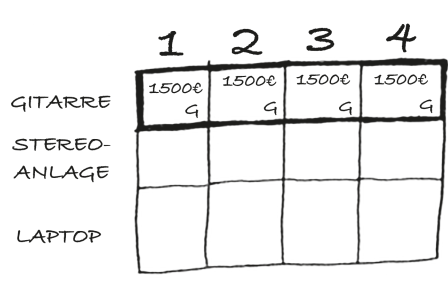 1 2 3 4
GITARRE 1500€ G 1500€ G 1500€ G 1500€ G
STEREO-
ANLAGE
LAPTOP